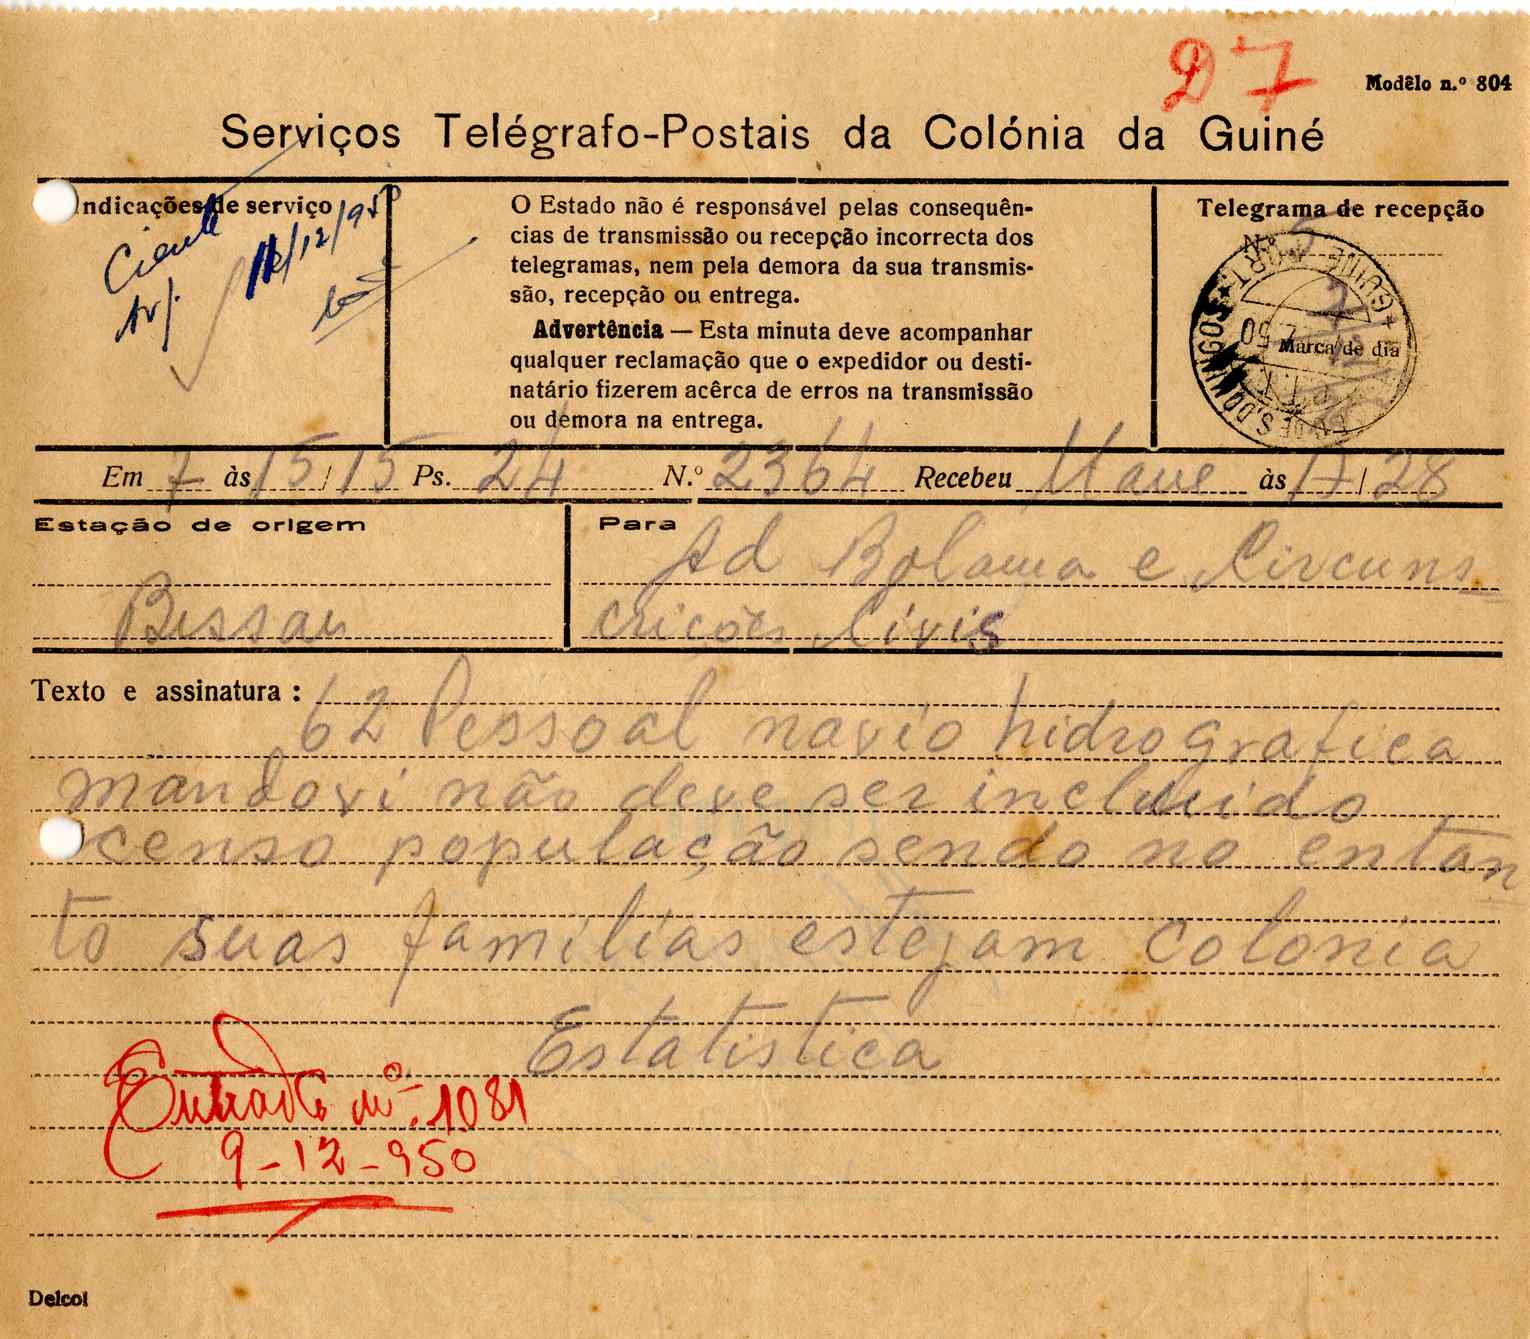 D7
Modêlo n.º 804
Serviços Telégrafo-Postais da Colónia da Guiné
Indicações de serviço
Ciente
Arq.
12/12/950
O Estado não é responsável pelas consequên-
cias de transmissão ou recepção incorrecta dos
telegramas, nem pela demora da sua transmis-
são, recepção ou entrega.
Advertência — Esta minuta deve acompanhar
qualquer reclamação que o expedidor ou desti-
natário fizerem acêrca de erros na transmissão
ou demora na entrega.
Telegrama de recepção
N.º 5
GUINÉ PORT.
Marca de dia
S. DOMINGOS
Em 7 às 15/15 Ps. 24 N.º 2364 Recebeu às 17/28
Estação de origem
Bissau
Para
Ad Bolama e Circuns
crições Civis
Texto e assinatura :
62 Pessoal navio hidrografica
mandovi não deve ser incluido
censo população sendo no entan
to suas famílias estejam colonia
Estatistica
Entrada nº. 1081
9-12-950
Delcol